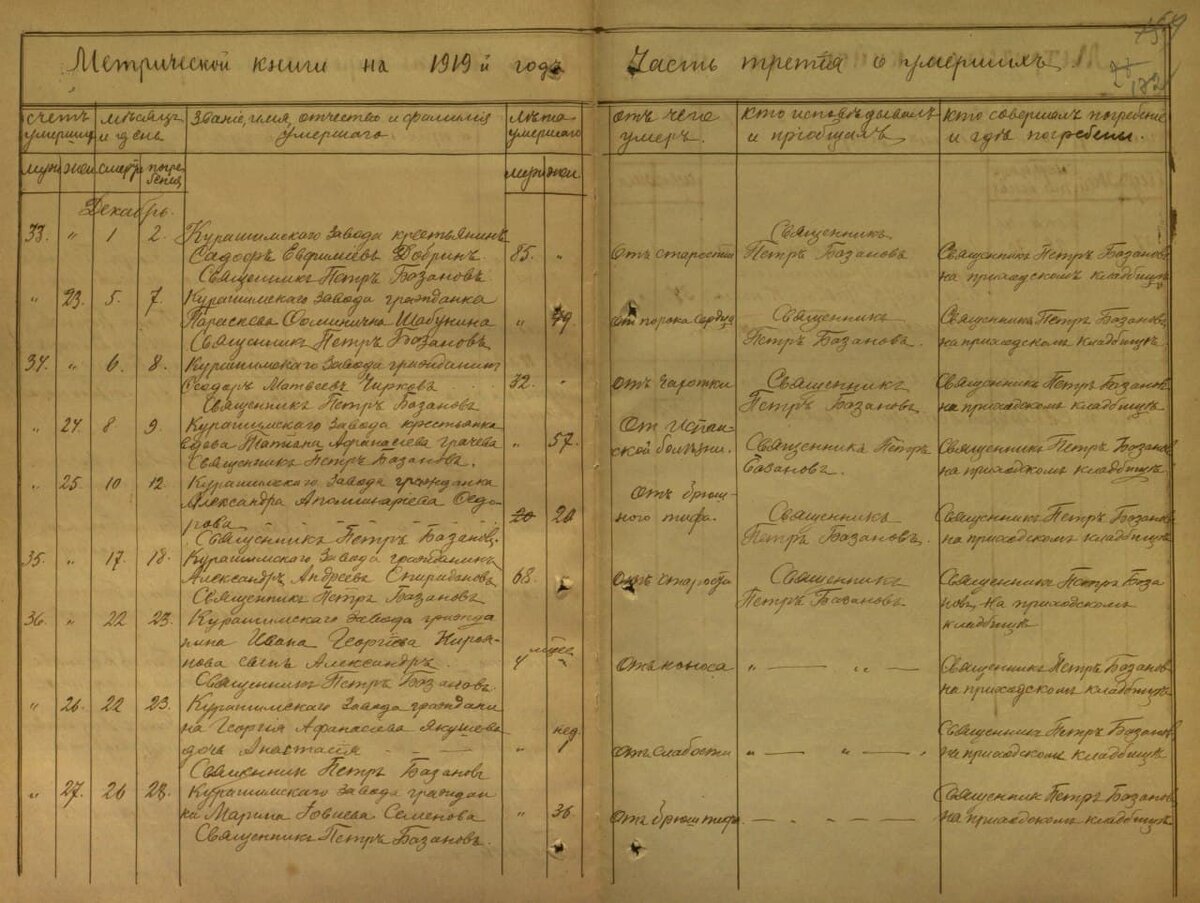 Метрической книги на 1919й годъ Часть третія о умершихъ
159
182
счетъ умершихъ
мѣсяцъ и день
Званіе, имя, отчество и фамилія умершаго
лѣта умершаго
отъ чего умеръ.
кто исповѣдывалъ и пріобщалъ
кто совершалъ погребеніе и гдѣ погребены.
муж жен смерти погребенія муж жен
Декабрь.
33. " 1 2. Курашимскаго Завода крестьянинъ Священникъ
Сидоръ Евфимiевъ Добрин 85. " Отъ старости Петръ Базановъ Священникъ Петръ Базановъ
Священникъ Петръ Базановъ. на приходскомъ кладбищѣ
" 23. 5. 7. Курашимскаго Завода гражданка
Параскева Фоминична Шабунина " 79 от порока сердца Священникъ Священникъ Петръ Базановъ
Священникъ Петръ Базановъ Петръ Базановъ. на приходскомъ кладбищѣ
34. " 6. 8. Курашимскаго Завода гражданинъ
Ѳеодоръ Матвеевъ Чирковъ 32. " отъ чахотки Священникъ Священникъ Петръ Базановъ
Священникъ Петръ Базановъ Петръ Базановъ. на приходскомъ кладбищѣ
" 24. 8 9. Курашимскаго Завода крестьянка От Испан-
вдова Татьяна Афанасіева Грачева " 57. ской болѣзни. Священникъ Петръ Священникъ Петръ Базановъ
Священникъ Петръ Базановъ. Базановъ. на приходскомъ кладбищѣ
" 25. 10 12. Курашимскаго Завода гражданка отъ брюш-
Александра Аполинаріева Ѳедо-
рова 20 20 ного тифа. Священникъ Священникъ Петръ Базановъ
Священникъ Петръ Базановъ. Петръ Базановъ. на приходскомъ кладбищѣ
35. " 17. 18. Курашимскаго Завода гражданинъ
Александръ Андреевъ Спиридоновъ 68. отъ старости Священникъ Священникъ Петръ База
Священникъ Петръ Базановъ Петръ Базановъ новъ, на приходскомъ
кладбищѣ
36. " 22 23. Курашимскаго Завода гражда
нина Ивана Георгіева Кирья- мѣсяц
нова сынъ Александръ. 4 " Отъ поноса " — " — Священникъ Петръ Базановъ
Священникъ Петръ Базановъ. на приходскомъ кладбищѣ
" 26. 22 23. Курашимскаго Завода граждани
на Георгія Афанасіева Якушева нед Священникъ Петръ Базановъ
дочь Анастасія " 1 Отъ слабости " — " — . на приходскомъ кладбищѣ
Священник Петръ Базановъ
" 27. 26 28. Курашимскаго Завода граждан Священник Петръ Базановъ
ка Марина Іовиева Семенова " 36 Отъ брюш тифа — на приходскомъ кладбищѣ
Священникъ Петръ Базановъ.